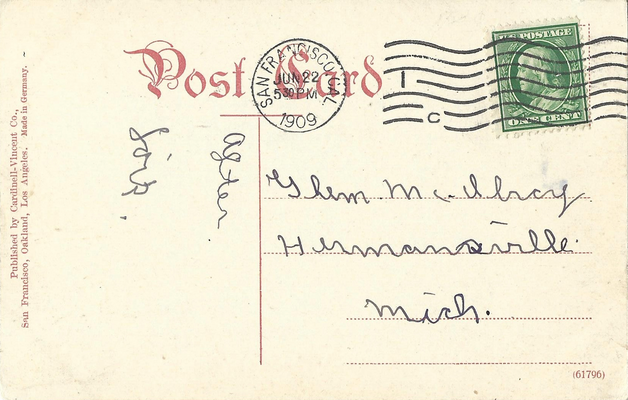 Post Card
SAN FRANCISCO, CAL.
JUN 22
530 PM
1909
1
C
U.S. POSTAGE
ONE CENT
Published by Cardinell-Vincent Co.,
San Francisco, Oakland, Los Angeles. Made in Germany.
after
Glem Mc
Hermansville
Mich.
(61796)